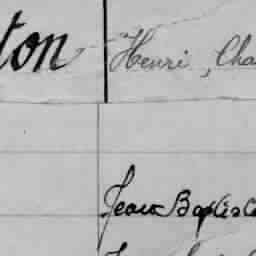 ton Henri, Cha
Jean Baptiste